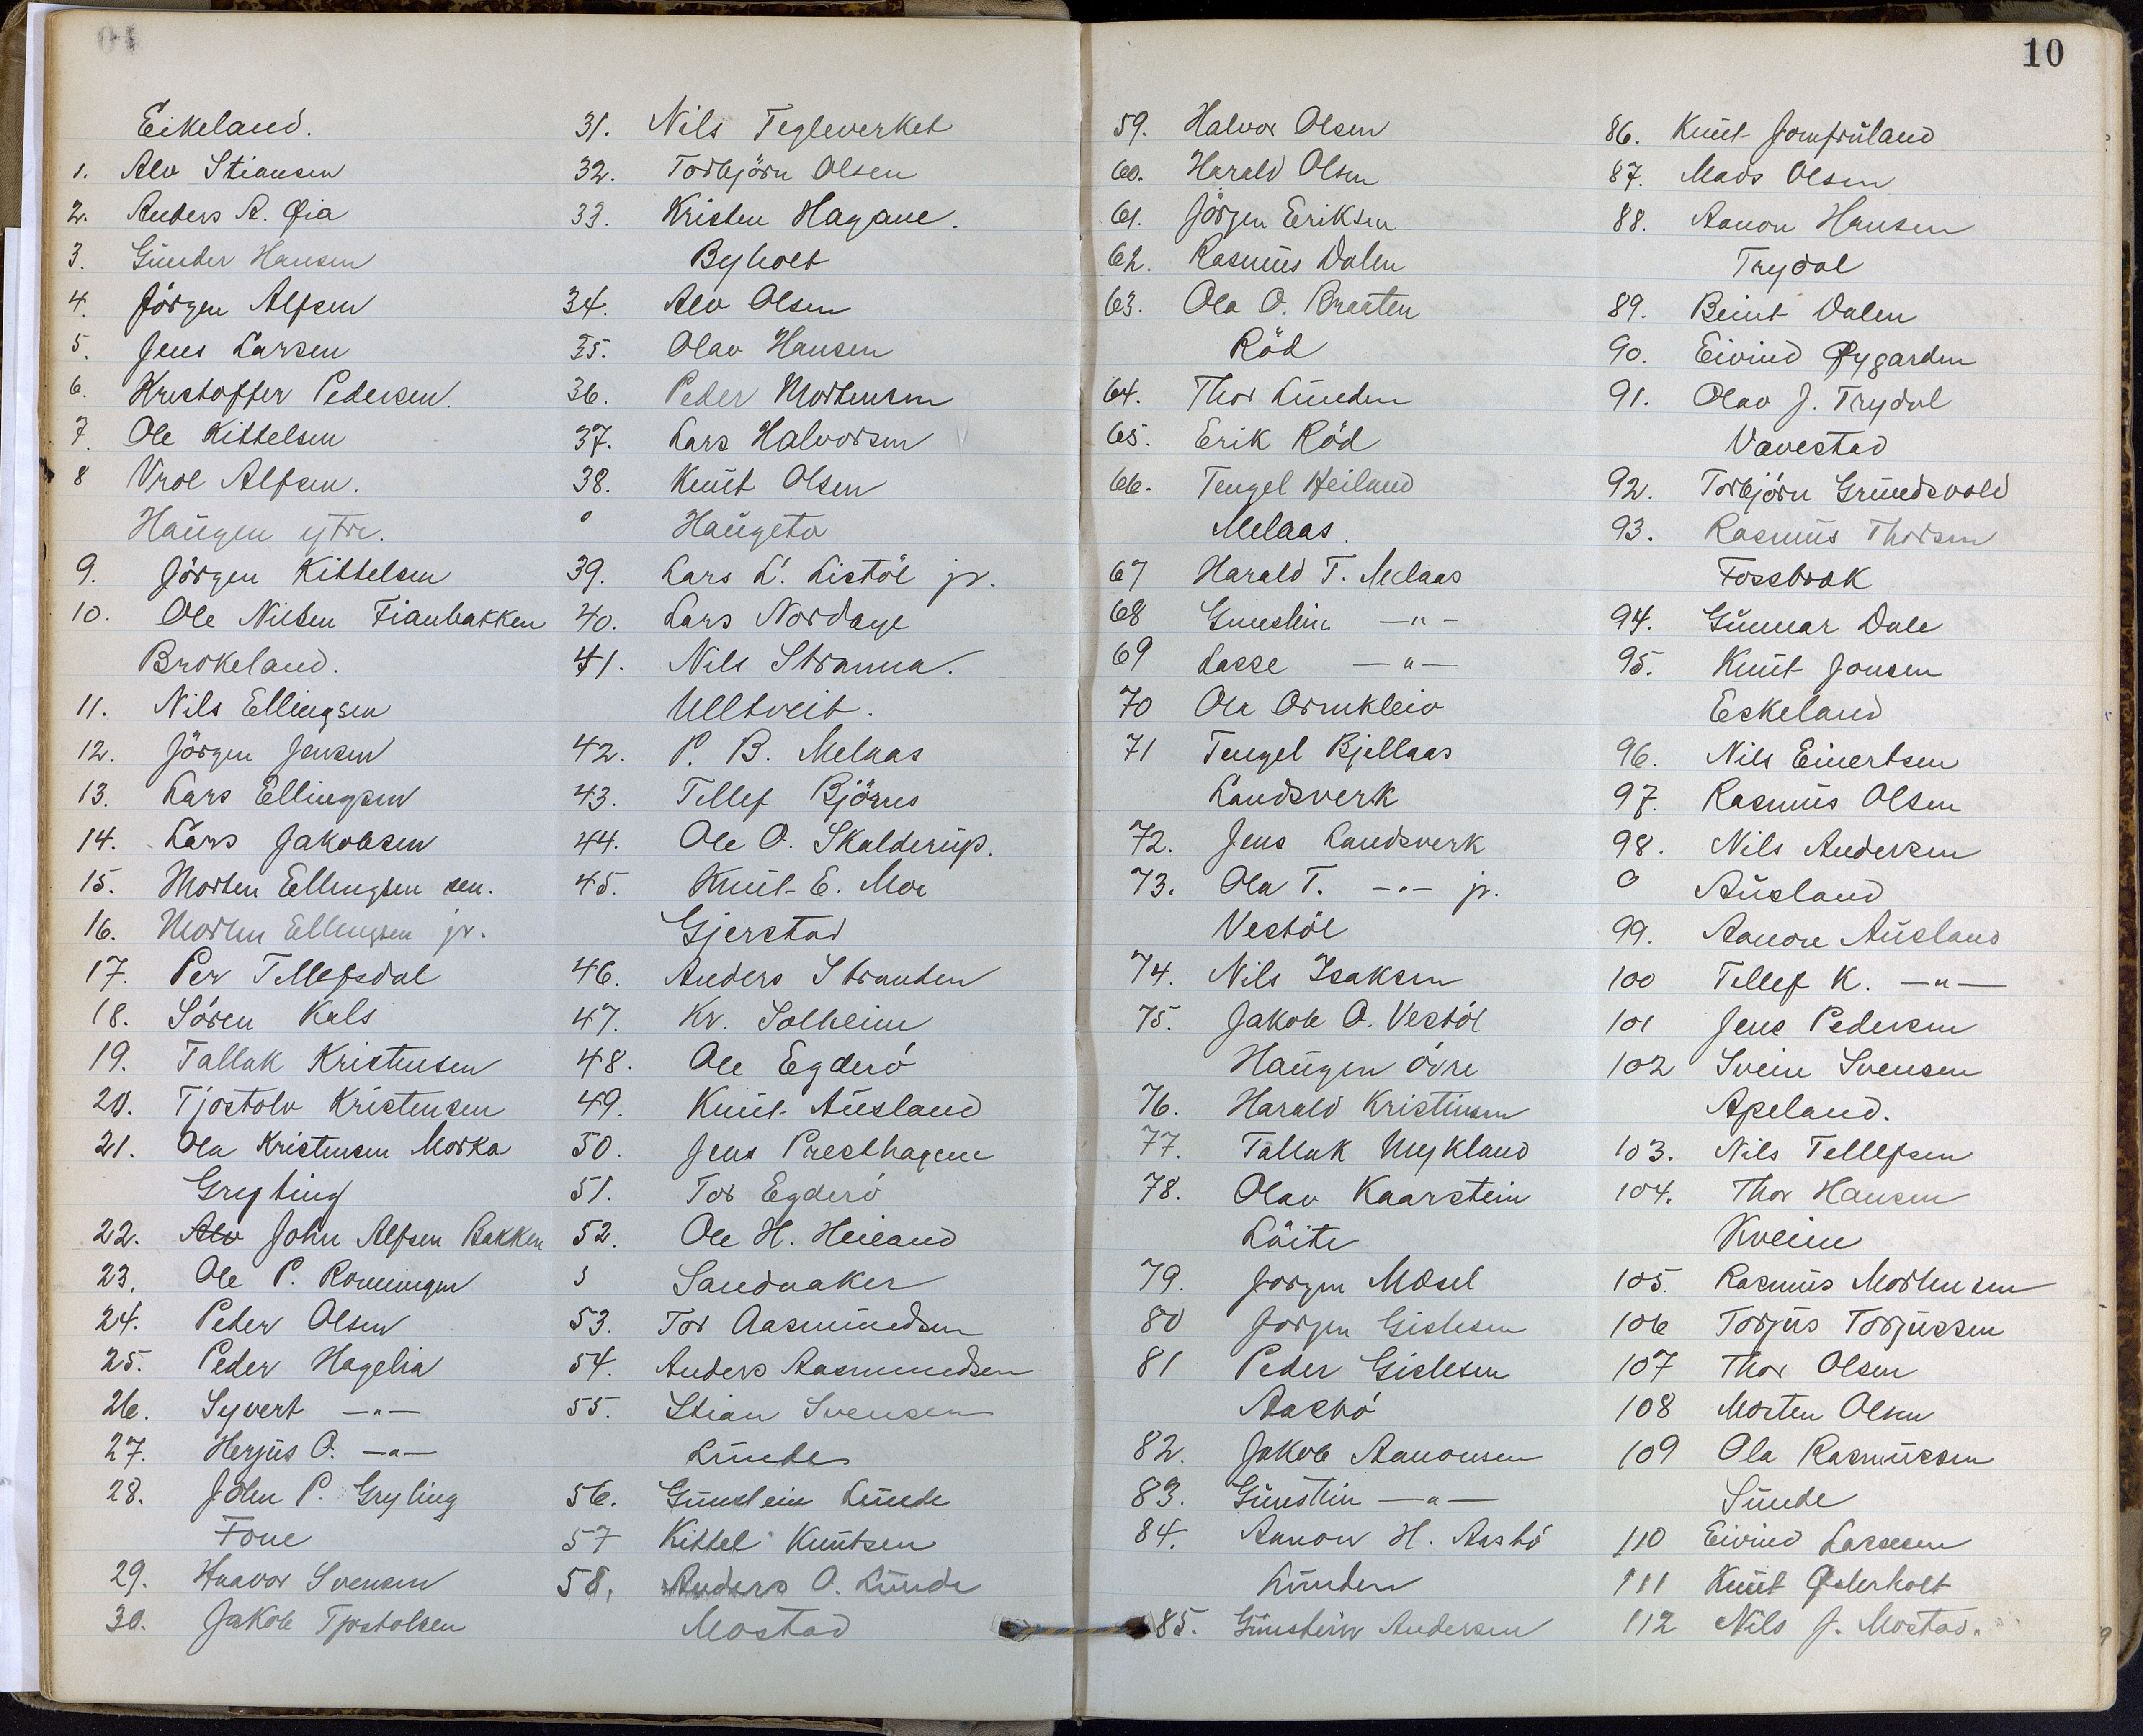 10
Eikeland.
1. Alv Stiansen
2. Anders A. Øia
3. Gunder Hansen
4. Jörgen Alfsen
5. Jens Larsen
6. Kristoffer Pedersen.
7. Ole Kittelsen
8 Vrol Alfsen.
Haugen ytre.
9. Jörgen Kittelsen
10. Ole Nilsen Fianbakken
Brokeland.
11. Nils Ellingsen
12. Jörgen Jensen
13. Lars Ellingsen
14. Lars Jakobsen
15. Morten Ellingsen sen.
16. Morten Ellingsen jr.
17. Per Tellefsdal
18. Sören Kals
19. Tallak Kristensen
20. Tjostolv Kristensen
21. Ola Kristensen Morka
Gryting
22. Alv John Alfsen Bakken
23. Ole P. Rommingen
24. Peder Olsen
25. Peder Hagelia
26. Syvert —"—
27. Herjus O. —"—
28. John P. Gryting
Fone
29. Haavor Svensen
30. Jakob Tjostolsen
31. Nils Tegleverket
32. Torbjörn Olsen
33. Kristen Hagane.
Byholt
34. Alv Olsen
35. Olav Hansen
36. Peder Mortensen
37. Lars Halvorsen
38. Knut Olsen
Haugeto
39. Lars L. Listöl jr.
40. Lars Nordage
41. Nils Stranna.
Ulltveit.
42. P. B. Melaas
43. Tellef Björnes
44. Ole O. Skalderup.
45. Knut E. Moe
Gjerstad
46. Anders Stranden
47. Kr. Solheim
48. Ole Egderö
49. Knut Ausland
50. Jens Presthagen
51. Tor Egderö
52. Ole H. Heiland
Sandaaker
53. Tor Aasmundsen
54. Anders Aasmundsen
55. Stian Svensen
Lunde
56. Gunstein Lunde
57 Kittel Knutsen
58. Anders O. Lunde
Mostad
59. Halvor Olsen
60. Harald Olsen
61. Jörgen Eriksen
62. Rasmus Dalen
63. Ola O. Braaten
Röd
64. Thor Lunden
65. Erik Röd
66. Tengel Heiland
Melaas.
67 Harald T. Melaas
68 Gunstein —"—
69 Lasse —"—
70 Ola Ormkleiv
71 Tengel Bjellaas
Landsverk
72. Jens Landsverk
73. Ola T. —"— jr.
Vestöl
74. Nils Isaksen
75. Jakob O. Vestöl
Haugen övre
76. Harald Kristensen
77. Tallak Nykland
78. Olav Kaarstein
Löite
79. Jorgen Mæsel
80 Jorgen Gislesen
81 Peder Gislesen
Aasbö
82. Jakob Aanonsen
83. Gunstein —"—
84. Aanon H. Aasbö
Lunden
85. Gunstein Andersen
86. Knut Jomfruland
87. Mads Olsen
88. Aanon Hansen
Trydal
89. Beint Dalen
90. Eivind Øygarden
91. Olav J. Trydal
Vavestad
92. Torbjörn Grundsvold
93. Rasmus Thorsen
Fossbrok
94. Gunnar Dale
95. Knut Jonsen
Eskeland
96. Nils Einertsen
97. Rasmus Olsen
98. Nils Andersen
Ausland
99. Aanon Ausland
100 Tellef K. —"—
101 Jens Pedersen
102 Svein Svensen
Apeland.
103. Nils Tellefsen
104. Thor Hansen
Kveim
105. Rasmus Mortensen
106 Torjus Torjussen
107 Thor Olsen
108 Morten Olsen
109 Ola Rasmussen
Sunde
110 Eivind Lassesen
111 Knut Østerholt
112 Nils J. Mostad.